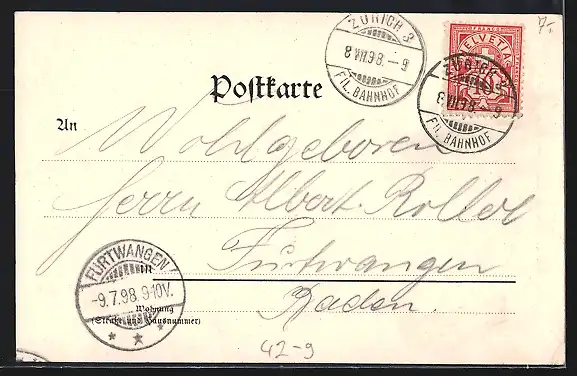 7.-
ZÜRICH 3
8.VII.98.-9
FIL. BAHNHOF
FRANCO
HELVETIA
10
ZÜRICH 3
8.VII.98.-9
FIL. BAHNHOF
Postkarte
An
Wohlgeboren
Herrn Albert Koller
Furtwangen
FURTWANGEN
in
-9.7.98.9-10V.
Baden.
Wohnung
(Straße und Hausnummer)
42-9